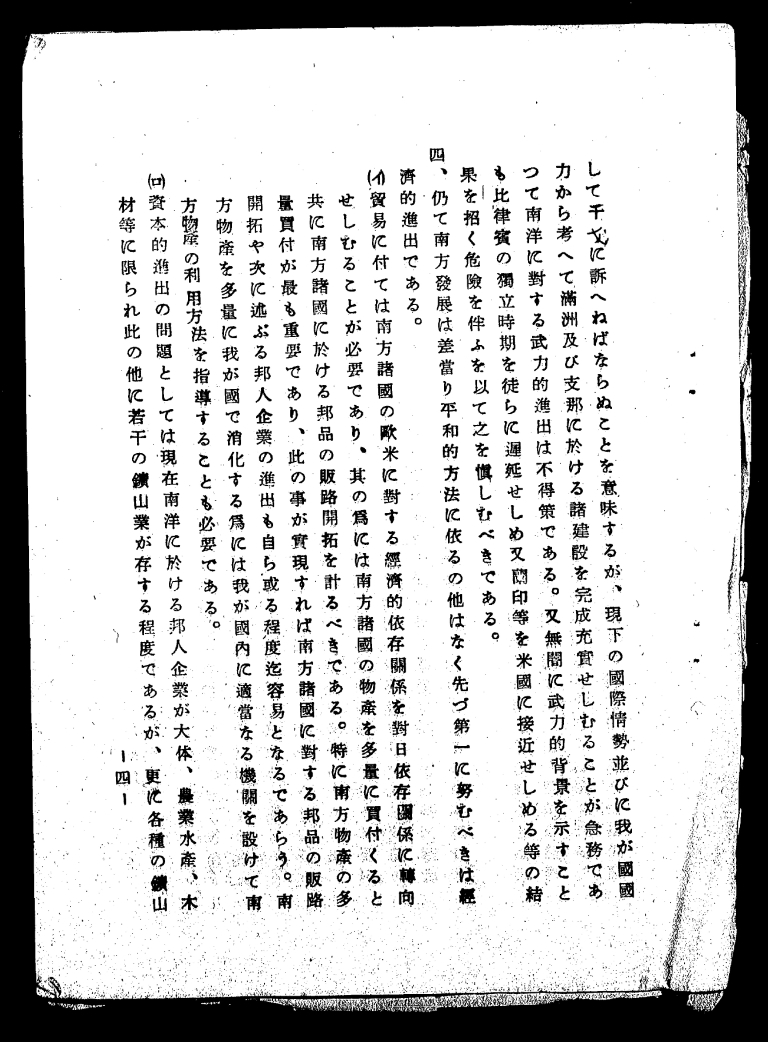 して干戈に訴へねばならぬことを意味するが、現下の國際情勢並びに我が國國
力から考へて滿洲及び支那に於ける諸建設を完成充實せしむることが急務であ
つて南洋に對する武力的進出は不得策である。又無闇に武力的背景を示すこと
も比律賓の獨立時期を徒らに遲延せしめ又蘭印等を米國に接近せしめる等の結
果を招く危險を伴ふを以て之を愼しむべきである。
四、仍て南方發展は差當り平和的方法に依るの他はなく先づ第一に努むべきは經
濟的進出である。
(イ)貿易に付ては南方諸國の歐米に對する經濟的依存關係を對日依存關係に轉向
せしむることが必要であり、其の爲には南方諸國の物產を多量に買付くると
共に南方諸國に於ける邦品の販路開拓を計るべきである。特に南方物產の多
量買付が最も重要であり、此の事が實現すれば南方諸國に對する邦品の販路
開拓や次に述ぶる邦人企業の進出も自ら或る程度迄容易となるであらう。南
方物產を多量に我が國で消化する爲には我が國內に適當なる機關を設けて南
方物產の利用方法を指導することも必要である。
(ロ)資本的進出の問題としては現在南洋に於ける邦人企業が大体、農業水產、木
材等に限られ此の他に若干の鑛山業が存する程度であるが、更に各種の鑛山
—四—